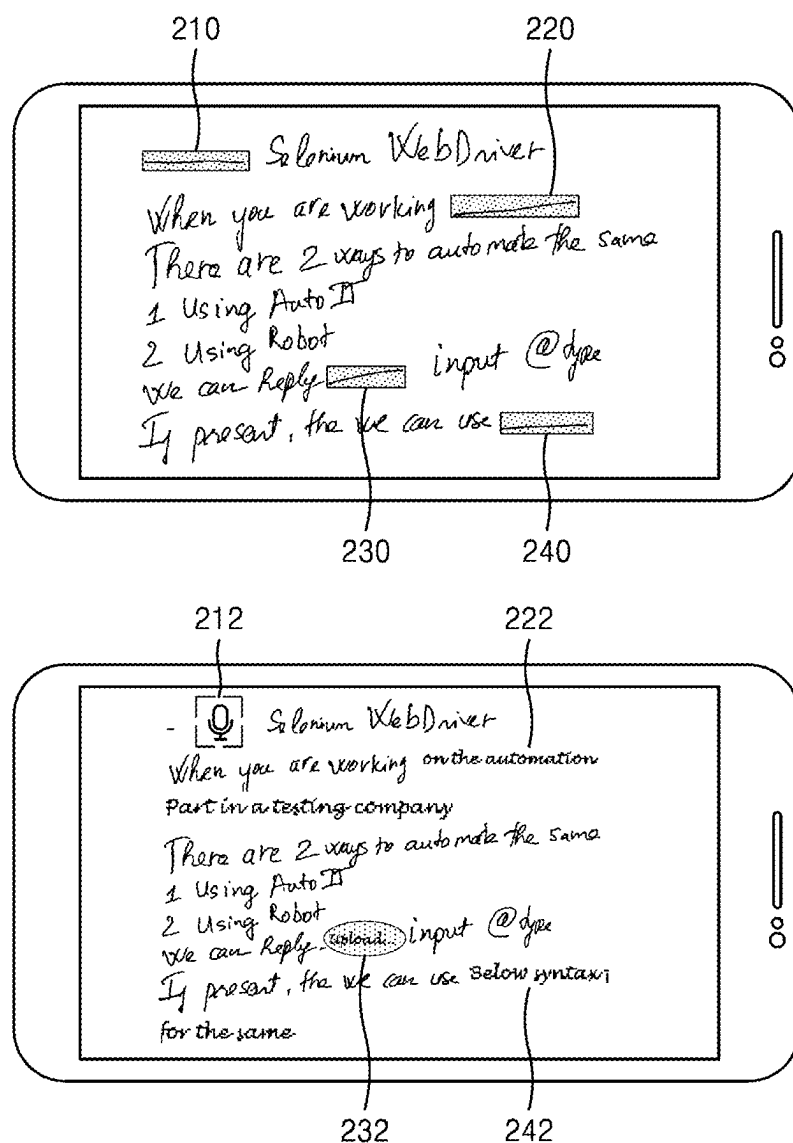 210 220
Selenium WebDriver
When you are working
There are 2 ways to automate the same
1 Using Auto IT
2 Using Robot
We can Reply input @type
If present, the we can use
230 240
212 222
- Selenium WebDriver
When you are working on the automation
Part in a testing company
There are 2 ways to automate the same
1 Using Auto IT
2 Using Robot
We can Reply upload input @type
If present, the we can use Below syntax
for the same
232 242